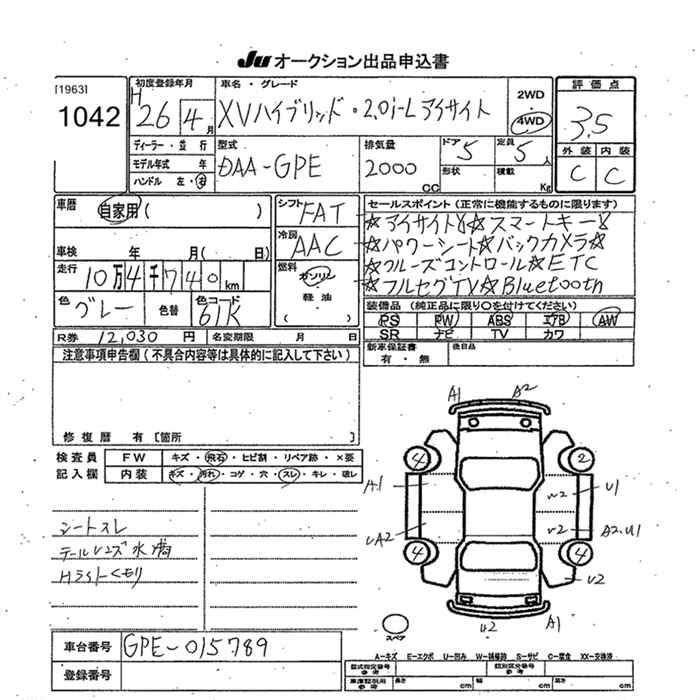 JU オークション出品申込書
[1963]
1042
初度登録年月
H 26年 4月
車名・グレード
XVハイブリッド・2.0i-L アイサイト
2WD
4WD
評価点
3.5
ディーラー・並行
モデル年式 年
ハンドル 左・右
型式
DAA-GPE
排気量
2000 CC
ドア 5
形状
定員 5 人
積載 Kg
外装 内装
C C
車歴
自家用( )
シフト
FAT
セールスポイント(正常に機能するものに限ります)
☆アイサイト☆スマートキー☆
☆パワーシート☆バックカメラ☆
☆クルーズコントロール☆ETC
☆フルセグTV☆Bluetooth
冷房
AAC
車検 年 月( 日)
走行
10万4千740km
燃料
ガソリン
軽油
( )
色
グレー
色替
色コード
61K
装備品(純正品に限り〇を付けてください)
PS PW ABS エアB AW
SR ナビ TV カワ
R券 12,030円
名変期限 月 日
新車保証書
有・無
後日品
注意事項申告欄(不具合内容等は具体的に記入して下さい)
修復歴 有 [箇所 ]
検査員
記入欄
FW キズ・飛石・ヒビ割・リペア跡・×要
内装 キズ・汚れ・コゲ・穴・スレ・キレ・破レ
シートスレ
テールレンズ水滴
Hライトくもり
A1 A2
4 2
A1 W2 U1
UA2 V2 A2.U1
4 4
U2
U2 A1
スペア
車台番号 GPE-015789
登録番号
A-キズ E-エクボ U-凹み W-補修跡 S-サビ C-腐食 XX-交換済
型式指定番号
参考
類別区分番号
参考
車庫証明用
参考
長さ cm 幅 cm 高さ cm